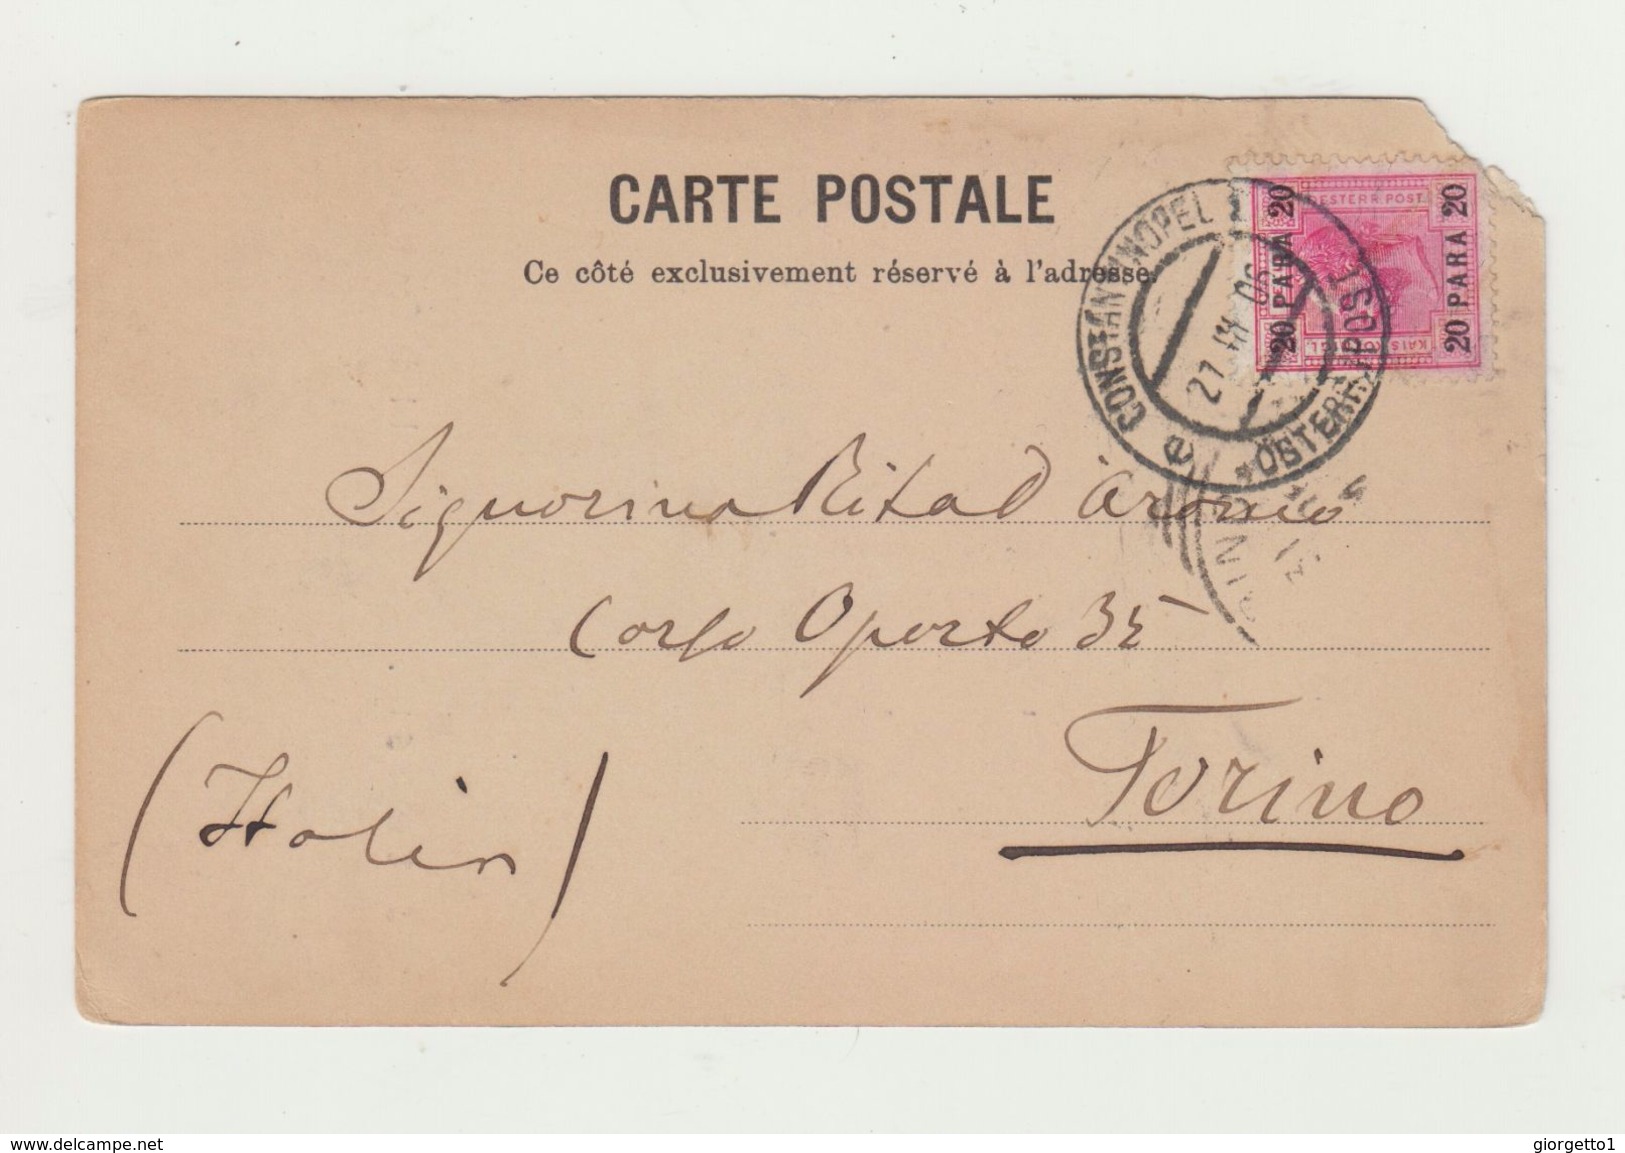 CARTE POSTALE
Ce côté exclusivement réservé à l'adresse.
CONSTANTINOPEL
ÖSTERR. POST
21 III 06
OESTERR. POST.
20 PARA 20
20 PARA 20
Signorina Rita d'
Corso Oporto 35
Torino
(Italien)
www.delcampe.net
giorgetto1